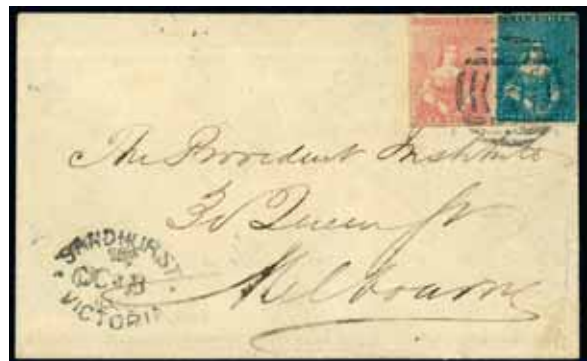 The Provident Institute
30 Queen St
Melbourne
SANDHURST
OC 18
VICTORIA